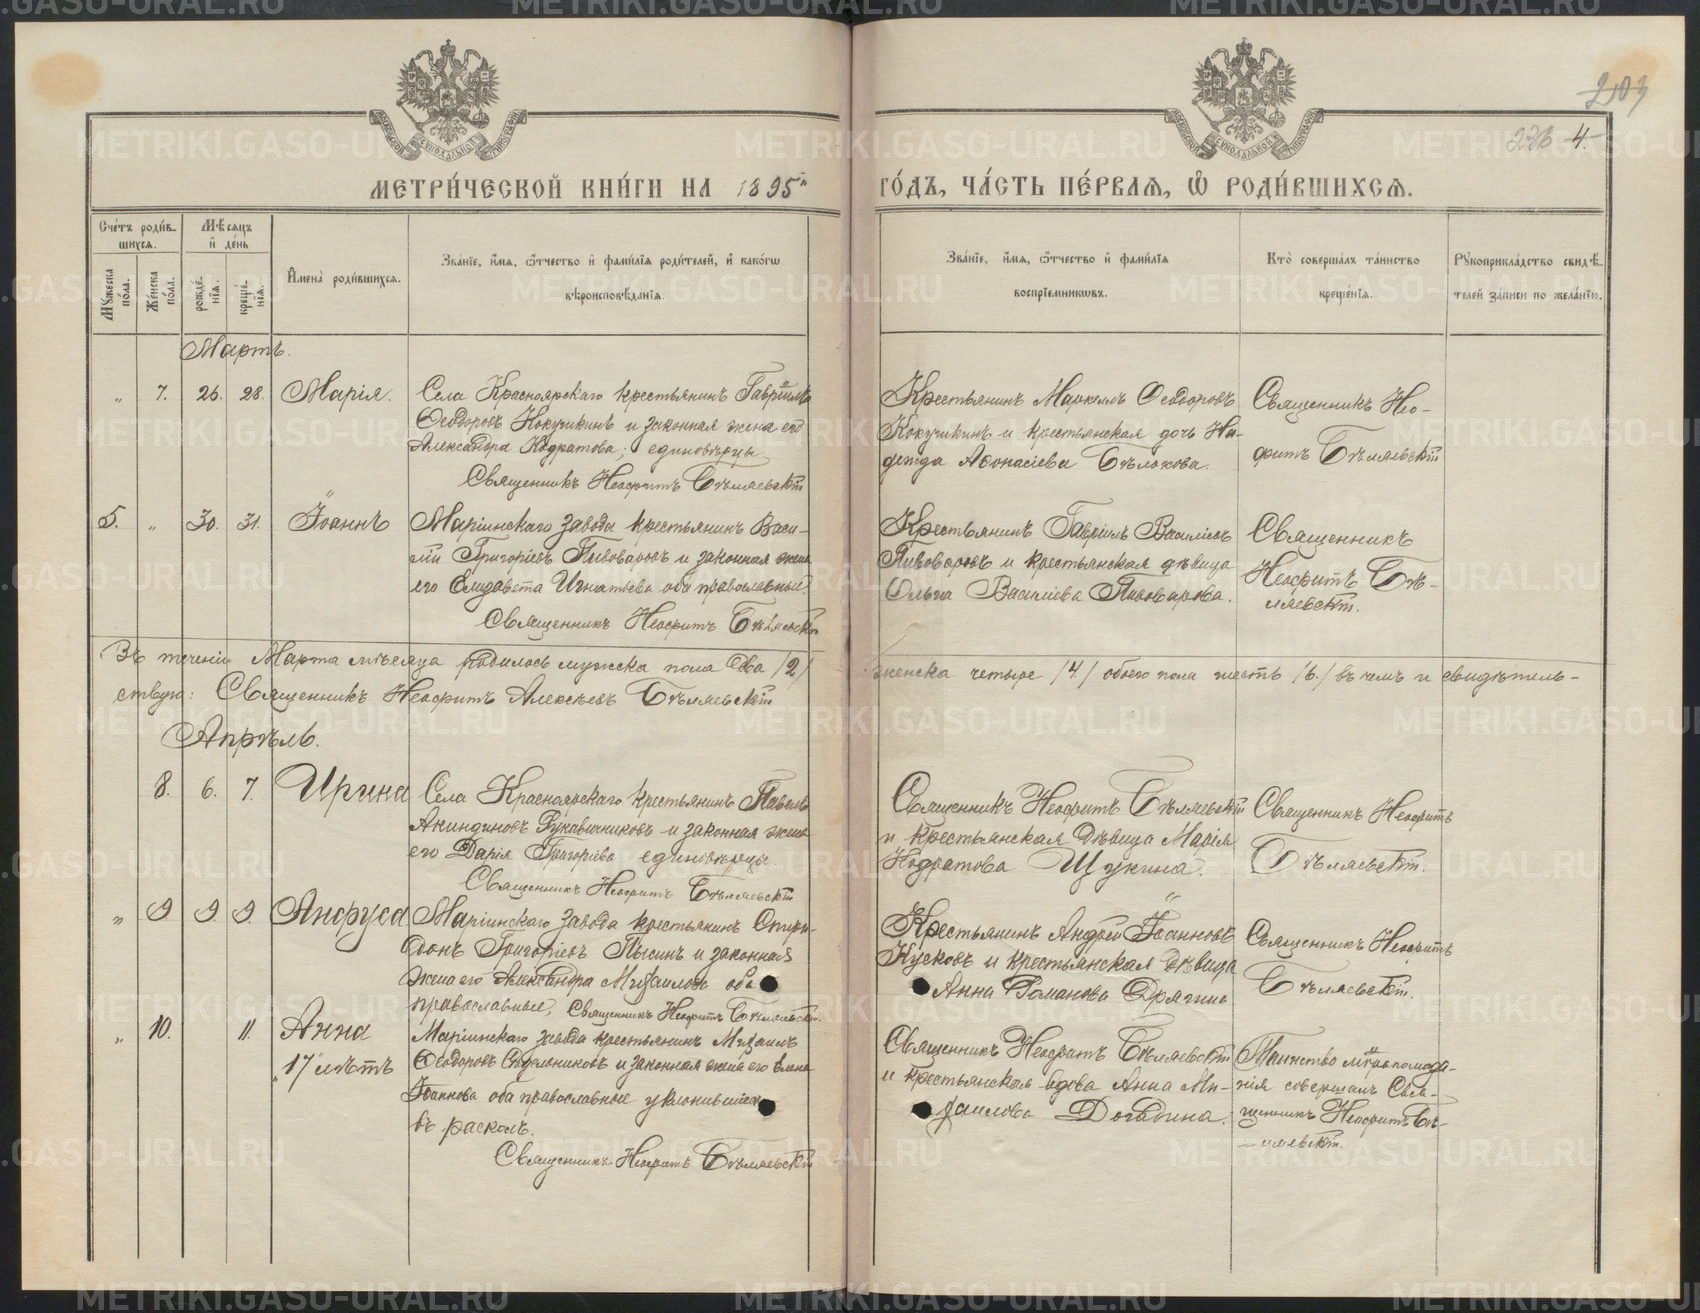 203
236 4.
МЕТРИ́ЧЕСКОЙ КНИ́ГИ НА 1895й ГО́ДЪ, ЧА́СТЬ ПЕ́РВАЯ, Ѡ РОДИ́ВШИХСЯ.
Сче́тъ роди́в-
шихся.
Мѣ́сяцъ
и҆ де́нь
Му́жеска
по́ла.
Же́нска
по́ла.
рожде́-
нїя.
креще́-
нїя.
И҆мена̀ роди́вшихся.
Зва́нїе, и҆́мя, ѻ҆́тчество и҆ фамилїя роди́телей, и҆ како́гѡ
вѣроисповѣ́данїя.
Зва́нїе, и҆́мя, ѻ҆́тчество и҆ фами́лїя
воспрїе́мникѡвъ.
Кто̀ соверша́лъ та́инство
креще́нїя.
Рукоприкла́дство свидѣ́-
телей за́писи по жела́нїю.
Мартъ.
„ 7. 26. 28. Марія.
Села Красноярскаго крестьянинъ Гавріилъ
Ѳеодоровъ Кокушкинъ и законная жена его
Александра Кодратова; единовѣрцы.
Священникъ Неофитъ Бѣляевскій
Крестьянинъ Маркеллъ Ѳеодоровъ
Кокушкинъ и крестьянская дочь На-
дежда Аѳонасіева Бѣлокова.
Священникъ Нео-
фитъ Бѣляевскій
5. „ 30. 31. Іоаннъ
Маріинскаго завода крестьянинъ Васи-
лій Григоріевъ Пивоваровъ и законная жена
его Елизавета Игнатьева оба православные.
Священникъ Неофитъ Бѣляевскій
Крестьянинъ Гавріилъ Василіевъ
Пивоваровъ и крестьянская дѣвица
Ольга Василіева Пивоварова.
Священникъ
Неофитъ Бѣ-
ляевскій.
Въ теченіи Марта мѣсяца родилось мужска пола два /2/ женска четыре /4./ обоего пола шесть /6./ въ чемъ и свидѣтель-
ствую: Священникъ Неофитъ Алексѣевъ Бѣляевскій
Апрѣль.
8. 6. 7. Ирина
Села Красноярскаго крестьянинъ Павелъ
Акиндиновъ Рукавичниковъ и законная жена
его Дарія Григоріева единовѣрцы.
Священникъ Неофитъ Бѣляевскій
Священникъ Неофитъ Бѣляевскій
и крестьянская дѣвица Марія
Кодратова Щукина.
Священникъ Неофитъ
Бѣляевскій.
„ 9 9. 9. Анфуса
Маріинскаго завода крестьянинъ Спири-
донъ Григоріевъ Пысинъ и законная
жена его Александра Михаилова оба
православные, Священникъ Неофитъ Бѣляевскій.
Крестьянинъ Андрей Іоанновъ
Кусковъ и крестьянская дѣвица
Анна Романова Дрягина
Священникъ Неофитъ
Бѣляевскій.
„ 10. 11. Анна
17 лѣтъ
Маріинскаго завода крестьянинъ Михаилъ
Ѳеодоровъ и законная жена его Елена
Іоаннова оба православные уклонившіеся
въ расколъ.
Священникъ Неофитъ Бѣляевскій
Священникъ Неофитъ Бѣляевскій
и крестьянская вдова Анна Ми-
хаилова Догадина.
Таинство мѵропомаза-
нія совершалъ Свя-
щенникъ Неофитъ Бѣ-
ляевскій.
METRIKI.GASO-URAL.RU